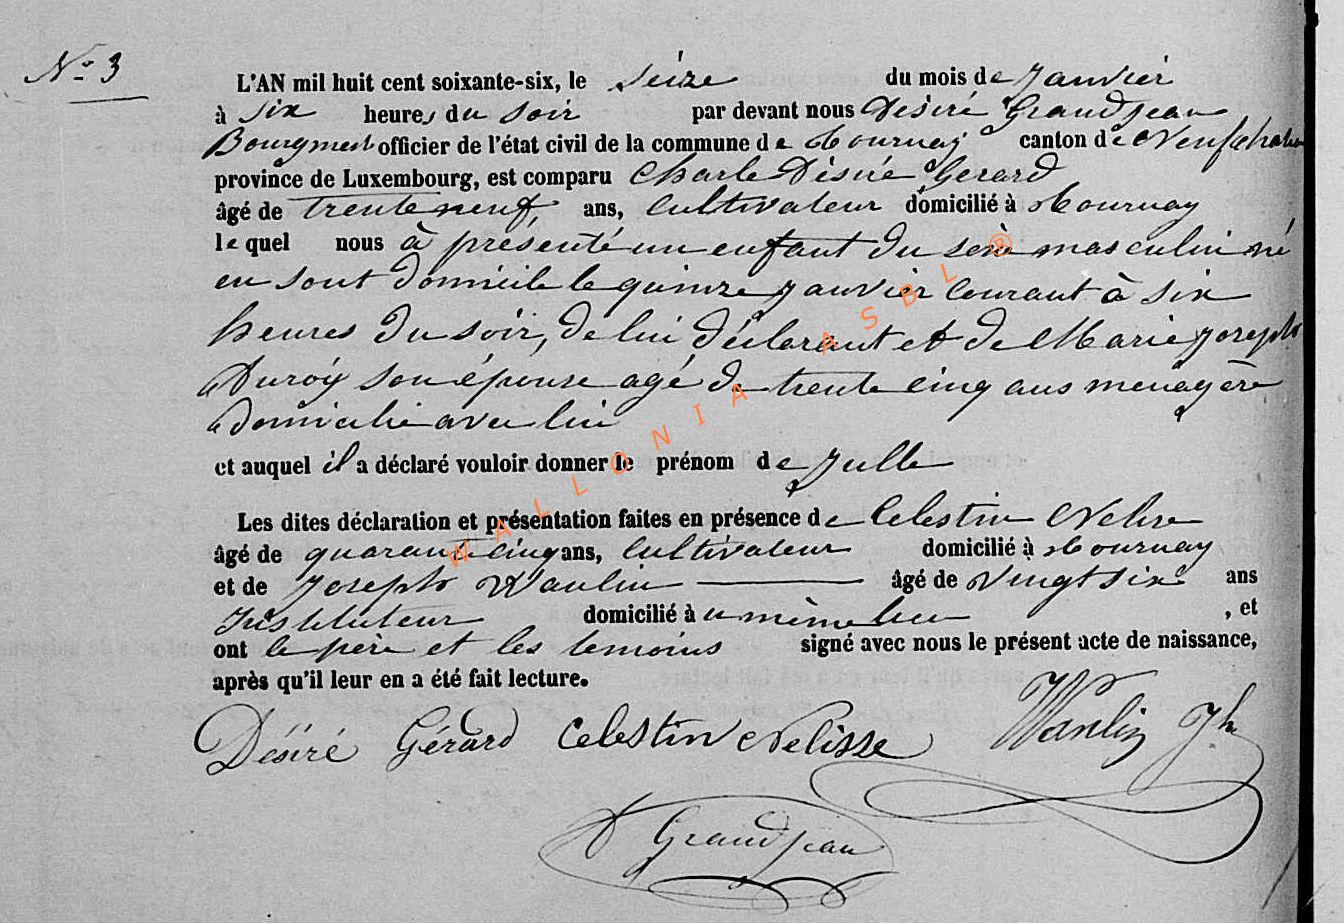 No 3
L'AN mil huit cent soixante-six, le Seize du mois de Janvier
à six heures du soir par devant nous Désiré Grandjean
Bourgmest officier de l'état civil de la commune de Tournay canton de Neufchateau
province de Luxembourg, est comparu Charle Désiré Gerard
âgé de trente neuf, ans, Cultivateur domicilié à Tournay
lequel nous à présenté un enfant du sexe masculin né
en sont domicile le quinze janvier Courant à six
heures du soir, de lui déclarant et de Marie Joseph
Duroy son épouse agé de trente cinq ans menagère
domicilié avec lui
et auquel il a déclaré vouloir donner le prénom de Julle
Les dites déclaration et présentation faites en présence de Celestin Nelisse
âgé de quarante cinq ans, Cultivateur domicilié à Tournay
et de Joseph Wanlin âgé de vingt six ans
Instituteur domicilié à u même lieu , et
ont le père et les temoins signé avec nous le présent acte de naissance,
après qu'il leur en a été fait lecture.
Désiré Gérard Celestin Nelisse Wanlin Jh
D Grandjean
WALLONIA ASBL ®